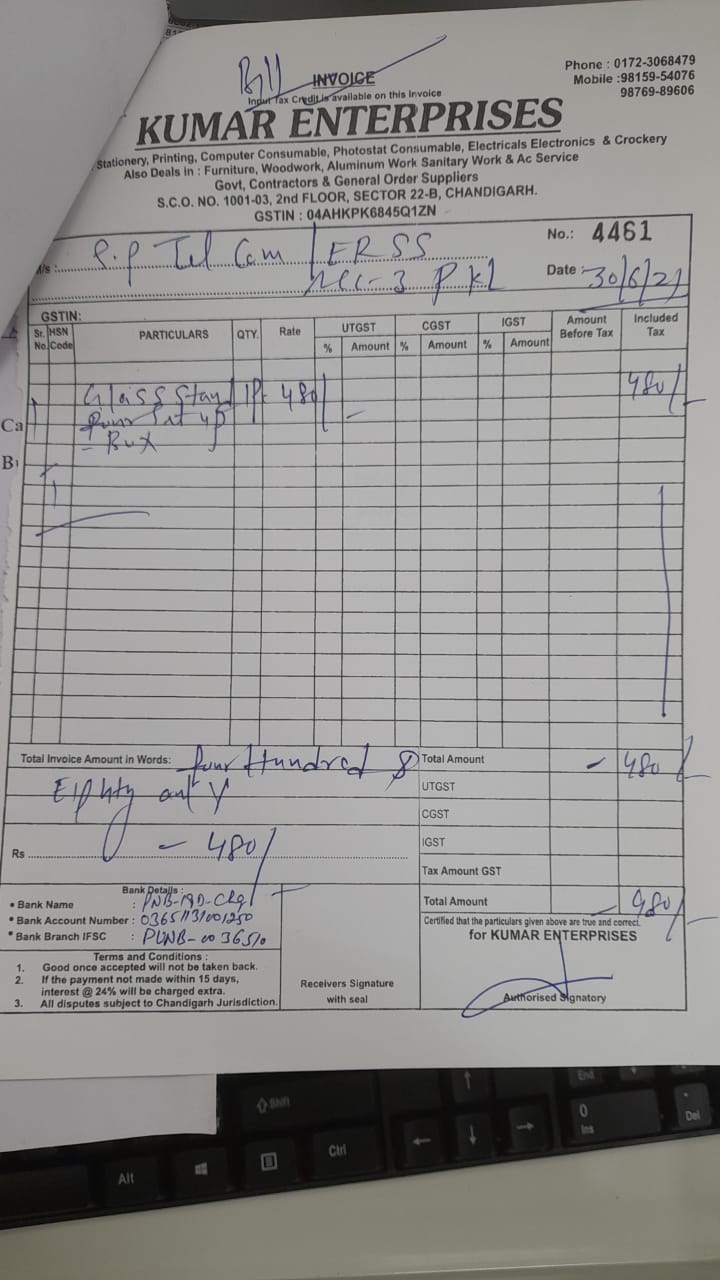 Bill INVOICE
Input Tax Credit is available on this Invoice
Phone : 0172-3068479
Mobile :98159-54076
98769-89606
KUMAR ENTERPRISES
Stationery, Printing, Computer Consumable, Photostat Consumable, Electricals Electronics & Crockery
Also Deals in : Furniture, Woodwork, Aluminum Work Sanitary Work & Ac Service
Govt, Contractors & General Order Suppliers
S.C.O. NO. 1001-03, 2nd FLOOR, SECTOR 22-B, CHANDIGARH.
GSTIN : 04AHKPK6845Q1ZN
M/s : S.P Tel Com / ERSS
Sec-3 PKL
No.: 4461
Date : 30/6/21
GSTIN:
Sr. No. HSN Code PARTICULARS QTY. Rate UTGST CGST IGST Amount Before Tax Included Tax
% Amount % Amount % Amount
Glass Stand 1P 480/ 480/-
- Box
Total Invoice Amount in Words: four Hundred &
Eighty only
Rs - 480/-
Total Amount - 480/-
UTGST
CGST
IGST
Tax Amount GST
Total Amount - 480/-
Bank Details :
• Bank Name : PNB-
• Bank Account Number :
• Bank Branch IFSC :
Terms and Conditions :
1. Good once accepted will not be taken back.
2. If the payment not made within 15 days,
interest @ 24% will be charged extra.
3. All disputes subject to Chandigarh Jurisdiction.
Receivers Signature
with seal
Certified that the particulars given above are true and correct.
for KUMAR ENTERPRISES
Authorised Signatory
Ca
Shift
End
0
Ins
Del
Alt
Ctrl